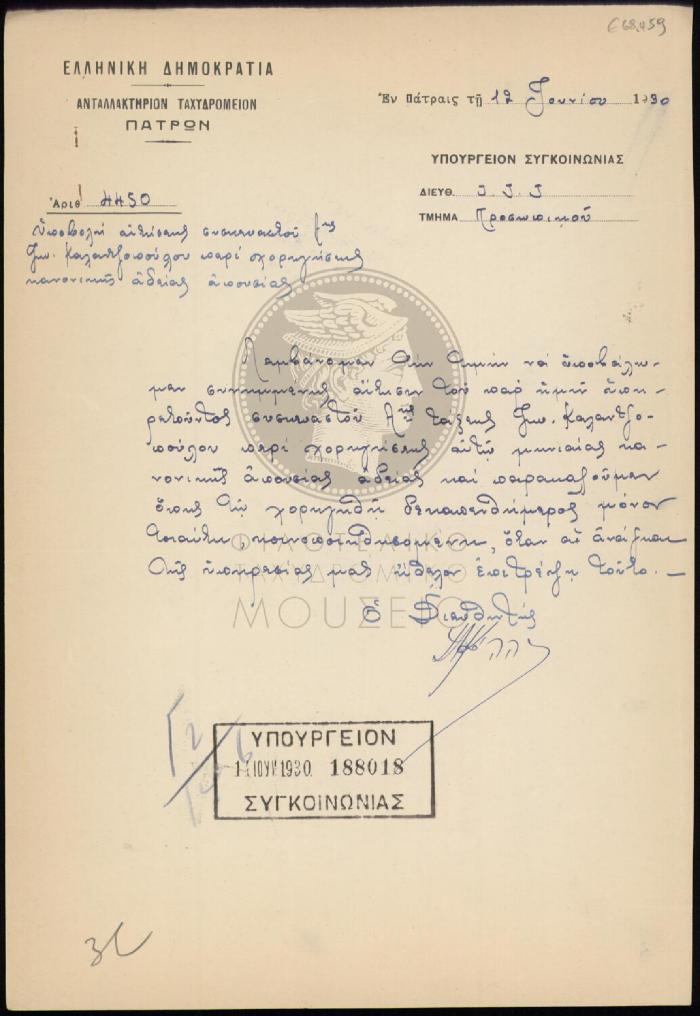 ΕΛΛΗΝΙΚΗ ΔΗΜΟΚΡΑΤΙΑ
ΑΝΤΑΛΛΑΚΤΗΡΙΟΝ ΤΑΧΥΔΡΟΜΕΙΟΝ
ΠΑΤΡΩΝ
Ἐν Πάτραις τῇ 12 Ἰουνίου 1930
ΥΠΟΥΡΓΕΙΟΝ ΣΥΓΚΟΙΝΩΝΙΑΣ
ΔΙΕΥΘ. Τ.Τ.Τ
ΤΜΗΜΑ Προσωπικοῦ
Ἀριθ 4450
Ὑποβολὴ αἰτήσεως συσκευαστοῦ Αης
Γεω. Καλαντζοπούλου περὶ χορηγήσεως
κανονικῆς ἀδείας ἀπουσίας
Λαμβάνομεν τὴν τιμὴν νὰ ὑποβάλω-
μεν συνημμένως αἴτησιν τοῦ παρ' ἡμῖν ὑπη-
ρετοῦντος συσκευαστοῦ Αης τάξεως Γεω. Καλαντζο-
πούλου περὶ χορηγήσεως αὐτῷ μηνιαίας κα-
νονικῆς ἀπουσίας ἀδείας καὶ παρακαλοῦμεν
ὅπως τῷ χορηγηθῇ δεκαπενθήμερος μόνον
τοιαύτη, ὅταν αἱ ἀνάγκαι
τῆς ὑπηρεσίας μας ἤθελον ἐπιτρέψῃ τοῦτο. —
ὁ Διευθυντής
ΦΙΛΟΤΕΛΙΚΟ
ΤΑΧΥΔΡΟΜΙΚΟ
ΜΟΥΣΕΙΟ
ΥΠΟΥΡΓΕΙΟΝ
ΙΟΥΝ 1930 188018
ΣΥΓΚΟΙΝΩΝΙΑΣ